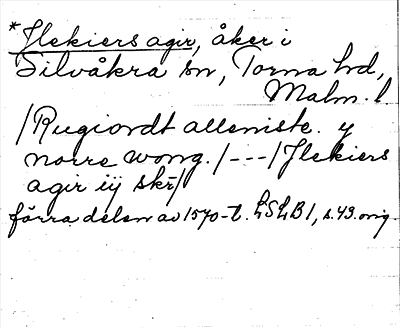 *Jlekiers agir, åker i
Silvåkra sn, Torna hd,
Malm. l.
/Rugiordt alleniste. y
norre wong. /---/ Jlekiers
agir iij skr/
förra delen av 1570-t. LSLB 1, s. 43. orig.